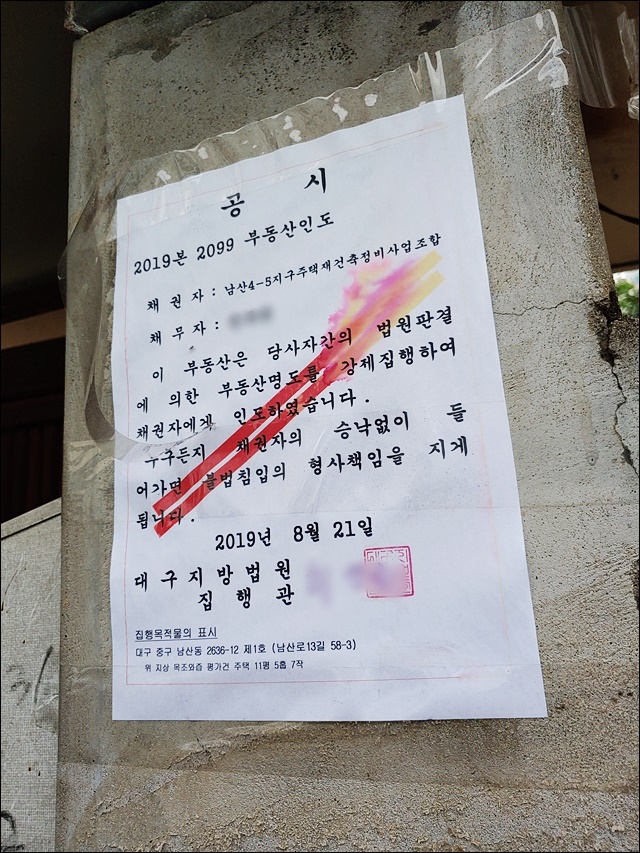 공 시
2019본 2099 부동산인도
채 권 자 : 남산4-5지구주택재건축정비사업조합
채 무 자 :
이 부동산은 당사자간의 법원판결
에 의한 부동산명도를 강제집행하여
채권자에게 인도하였습니다.
누구든지 채권자의 승낙없이 들
어가면 불법침입의 형사책임을 지게
됩니다.
2019년 8월 21일
대 구 지 방 법 원
집 행 관
집행목적물의 표시
대구 중구 남산동 2636-12 제1호 (남산로13길 58-3)
위 지상 목조와즙 평가건 주택 11평 5홉 7작